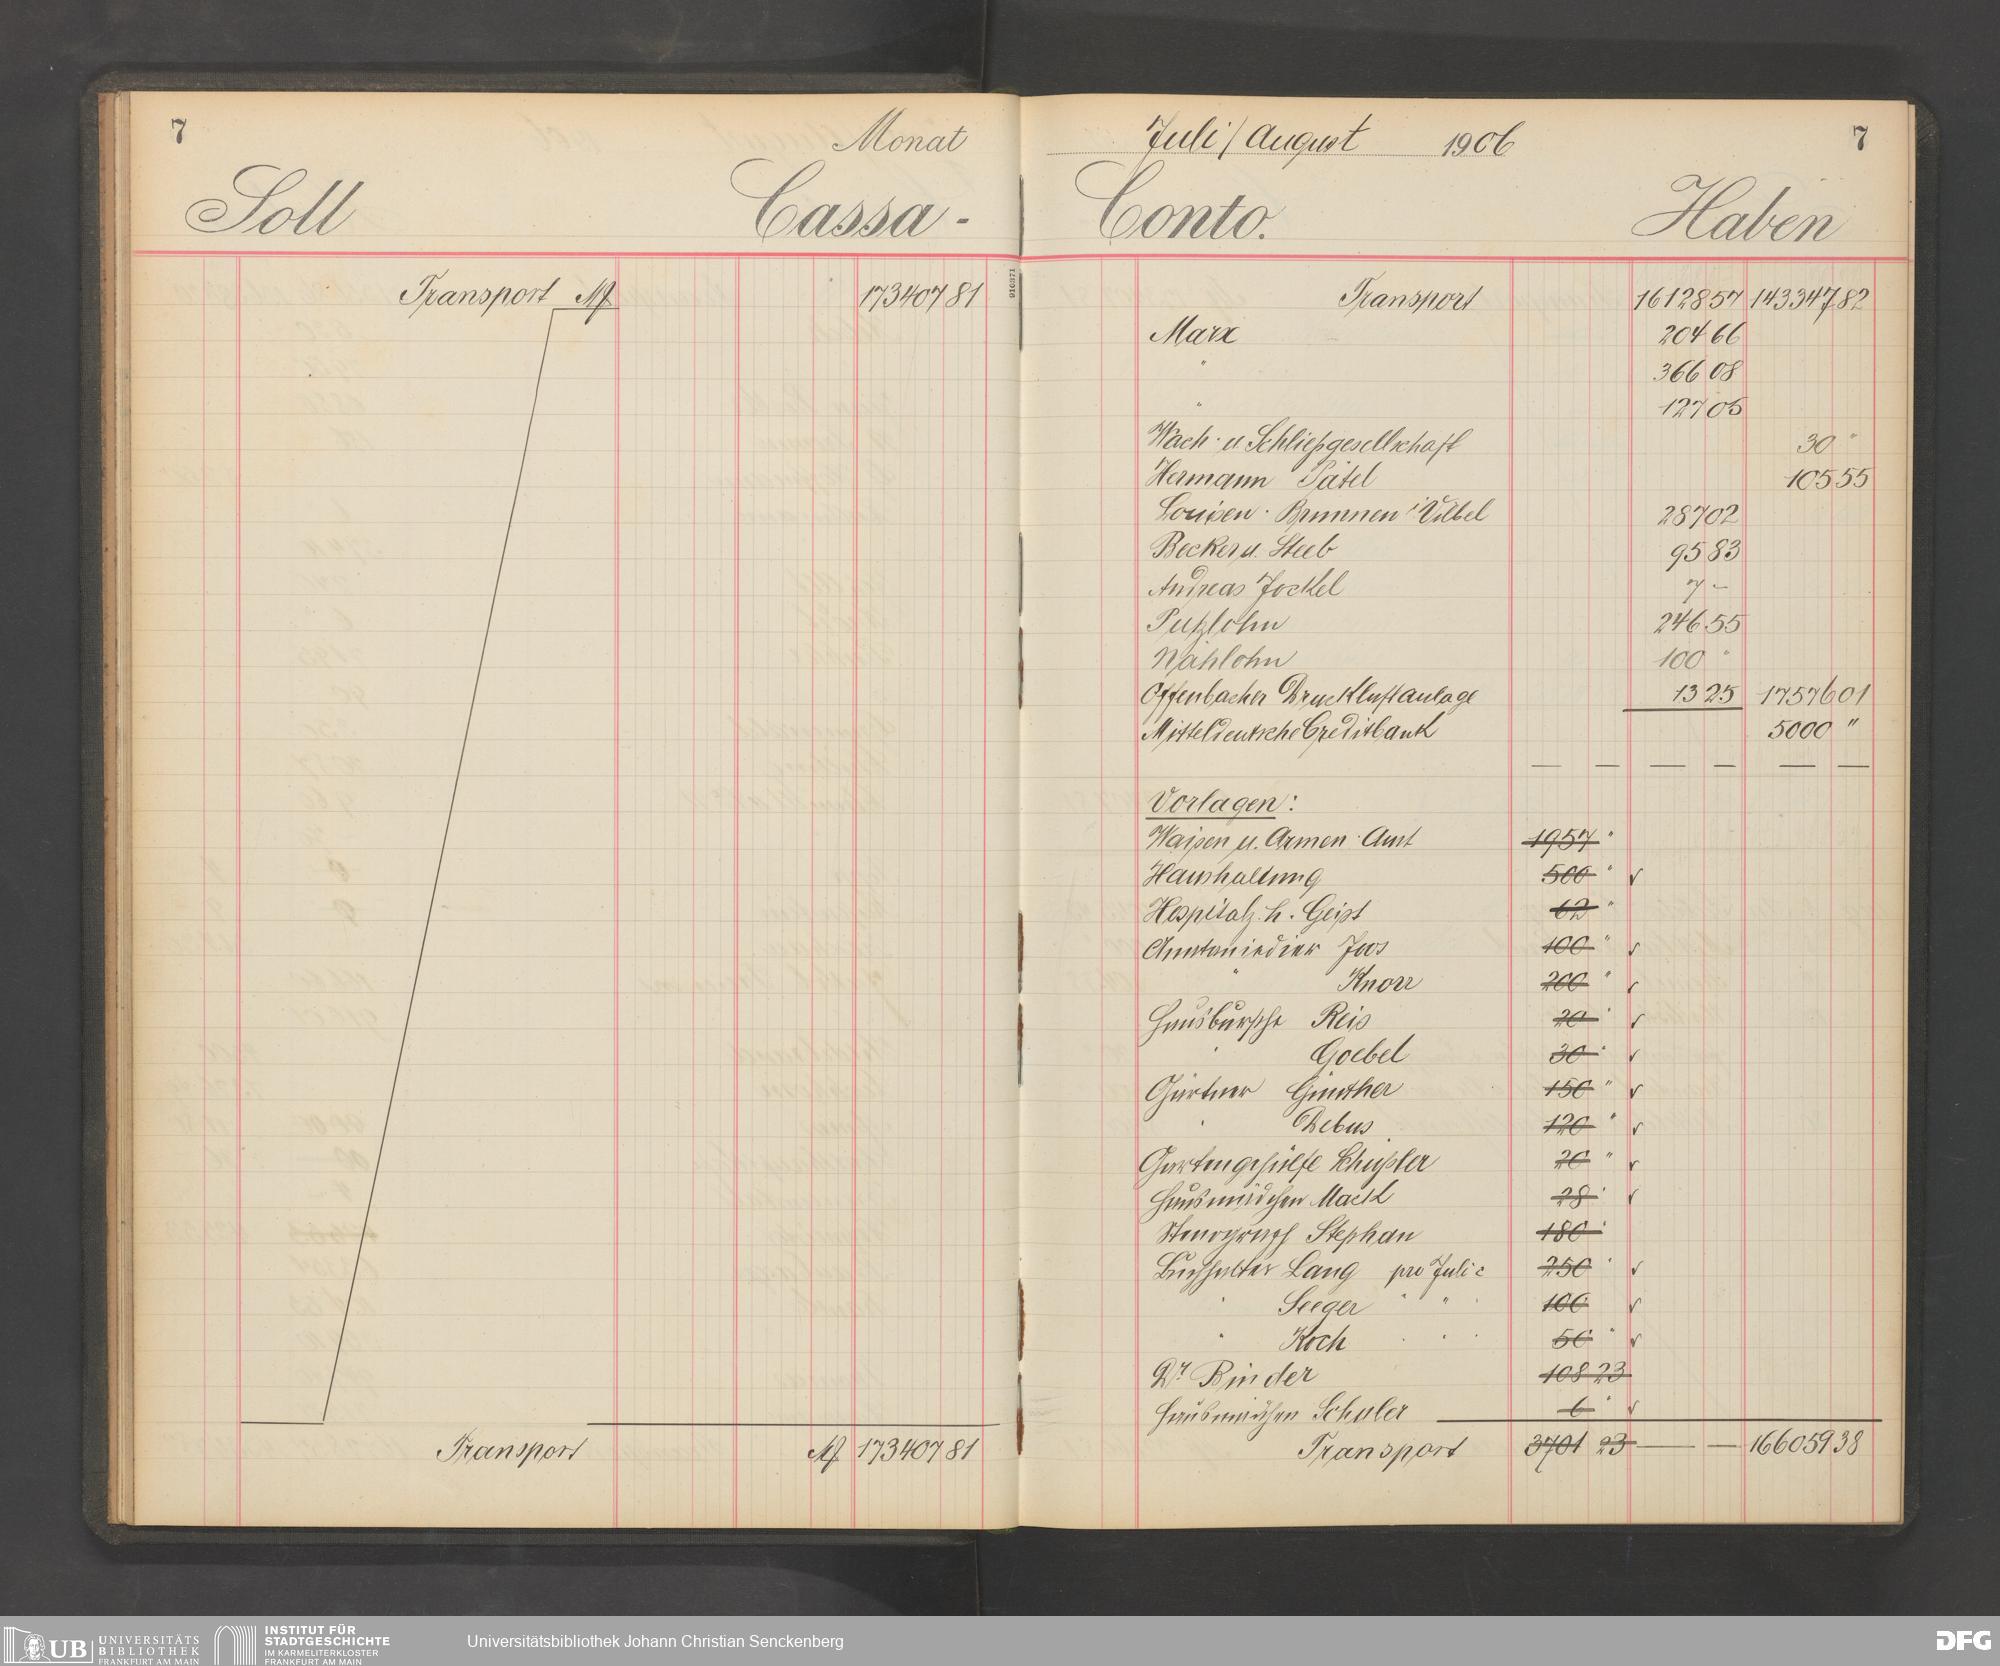 7
Monat
Soll
Cassa-
Transport M 173407 81
Transport M 173407 81
910371
Juli/August 1906
7
Conto.
Haben
Transport 16128 57 143347 82
Marx 204 66
" 366 08
" 127 05
Wach- u Schließgesellschaft 30 "
Hermann Pätel 105 55
Louisen-Brunnen i Vilbel 287 02
Becker u. Steeb 95 83
Andreas Jockel 7 –
Putzlohn 246 55
Nählohn 100 "
Offenbacher Druckluftanlage 13 25 17576 01
Mitteldeutsche Creditbank 5000 "
— — — — — —
Vorlagen:
Waisen u. Armen-Amt 1957 "
Haushaltung 500 "
Hospital z. h. Geist 62 "
Anatomiedier Joos 100 "
" Knorr 200 "
Hausbursche Reis 20 "
" Goebel 30 "
Gärtner Günther 150 "
" Debus 120 "
Gartengehülfe Schüssler 20 "
Hausmädchen Mack 28 "
Stenograph Stephan 180 "
Buchhalter Lang pro Juli c 250 "
" Seeger " " " 100
" Koch " " " 50 "
Dr. Binder 108 23
Hausmädchen Schuler 6 "
Transport 3701 23 — — 166059 38
UB UNIVERSITÄTS
BIBLIOTHEK
FRANKFURT AM MAIN
INSTITUT FÜR
STADTGESCHICHTE
IM KARMELITERKLOSTER
FRANKFURT AM MAIN
Universitätsbibliothek Johann Christian Senckenberg
DFG